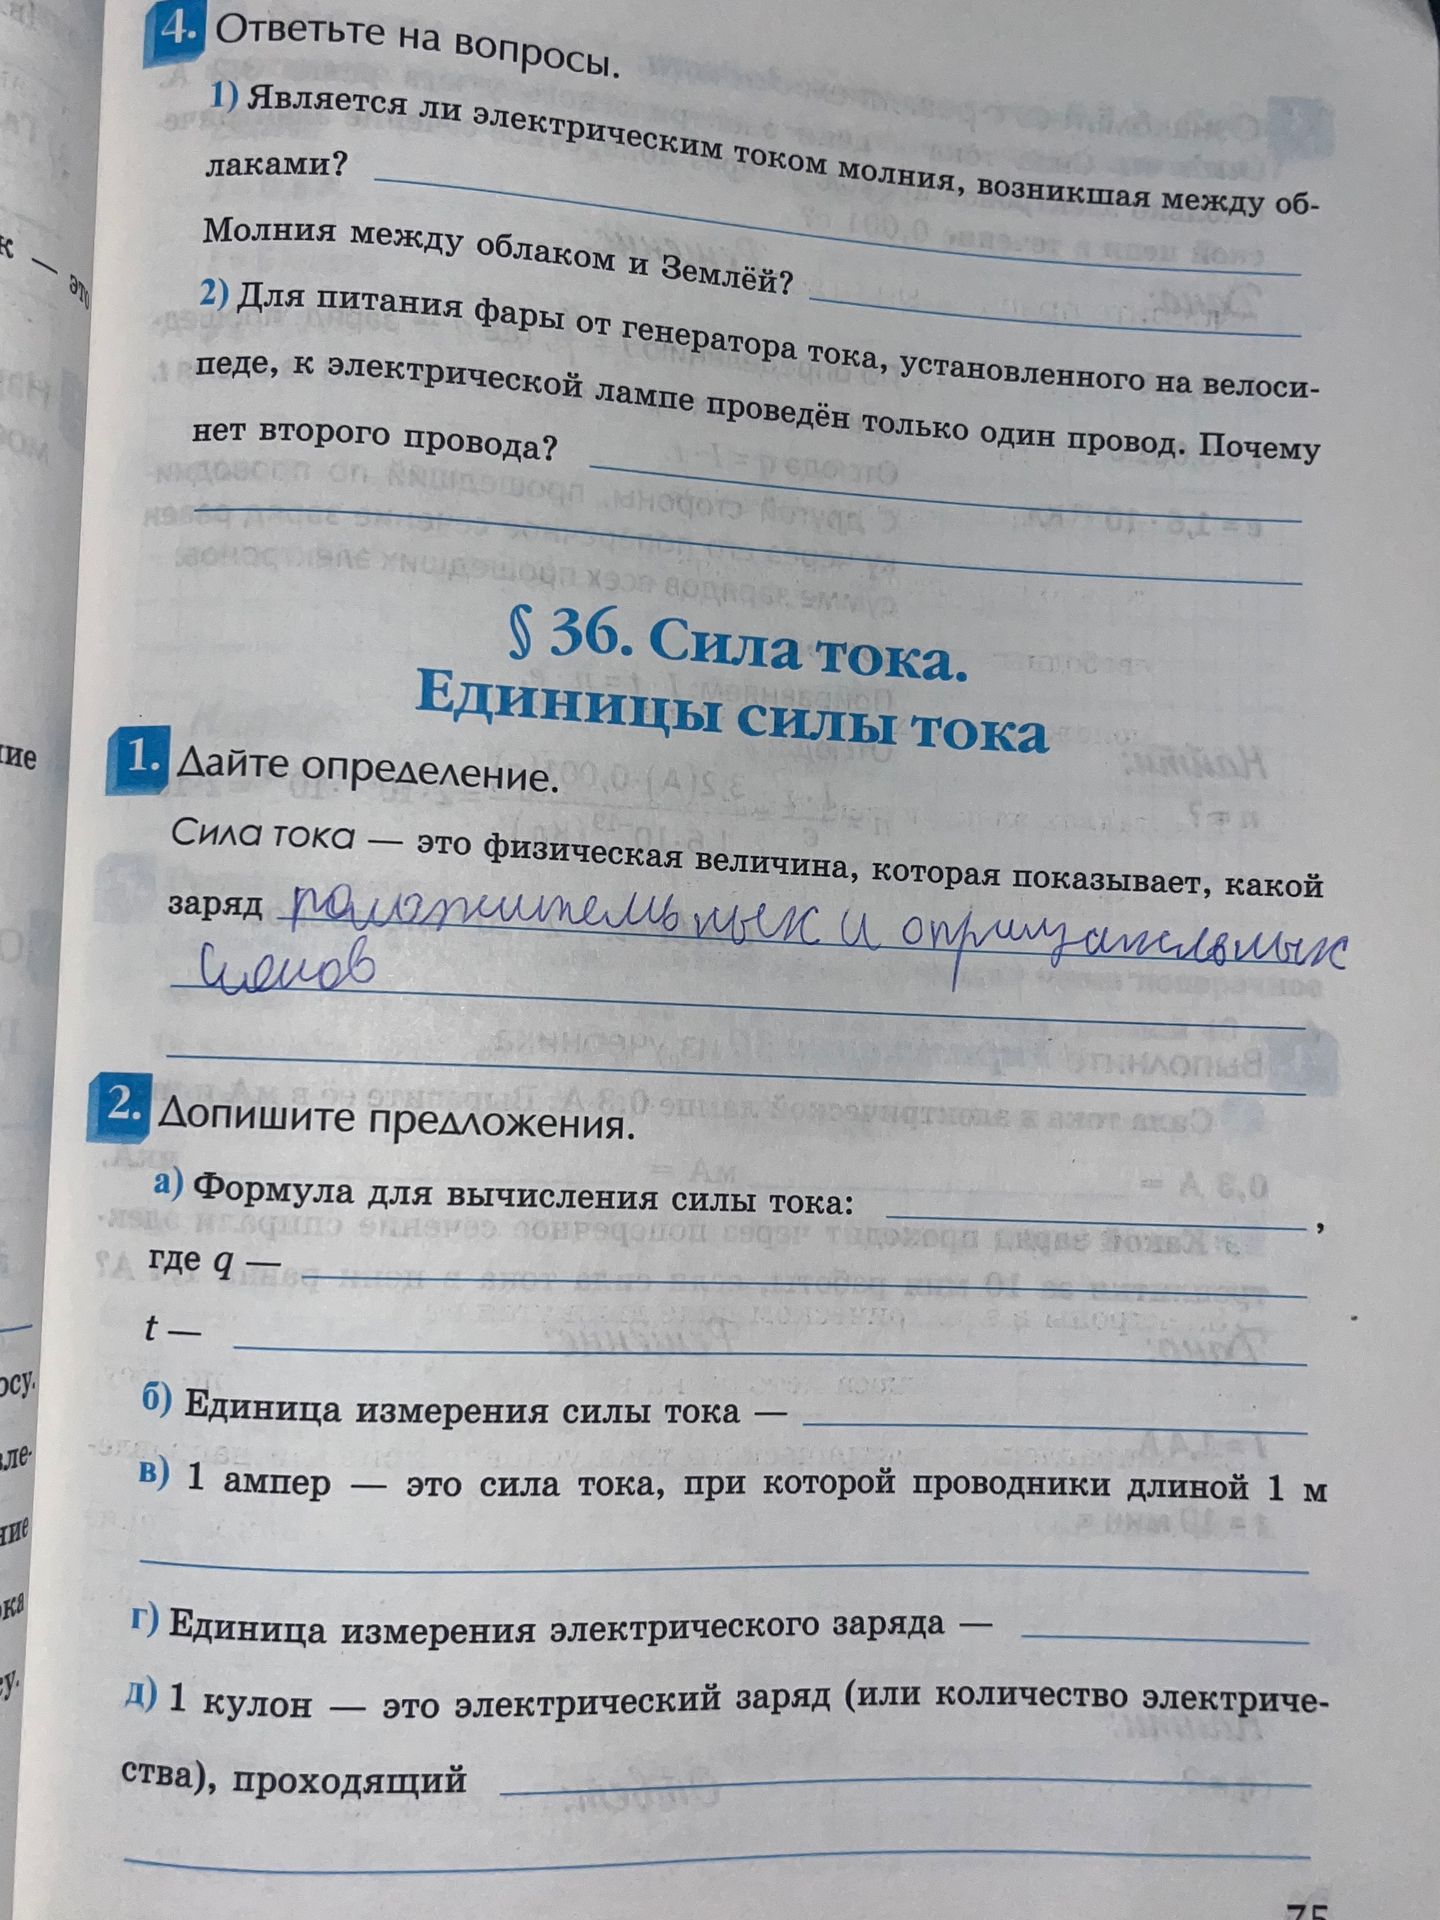 4. Ответьте на вопросы.
1) Является ли электрическим током молния, возникшая между об-
лаками?
Молния между облаком и Землёй?
2) Для питания фары от генератора тока, установленного на велоси-
педе, к электрической лампе проведён только один провод. Почему
нет второго провода?
§ 36. Сила тока.
Единицы силы тока
1. Дайте определение.
Сила тока — это физическая величина, которая показывает, какой
заряд положительных и отрицательных
ионов
2. Допишите предложения.
а) Формула для вычисления силы тока: ,
где q —
t —
б) Единица измерения силы тока —
в) 1 ампер — это сила тока, при которой проводники длиной 1 м
г) Единица измерения электрического заряда —
д) 1 кулон — это электрический заряд (или количество электриче-
ства), проходящий
75